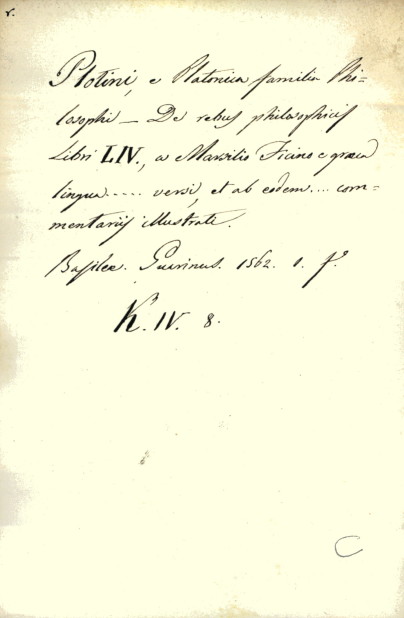 r.
Plotini, e Platonica familia Phi-
losophi — De rebus philosophicis
Libri LIV., a Marsilio Ficino e græca
lingua..... versi, et ab eodem.... com-
mentariis illustrati.
Basileæ. Guerinus. 1562. 1. fo.
K. IV. 8.
C